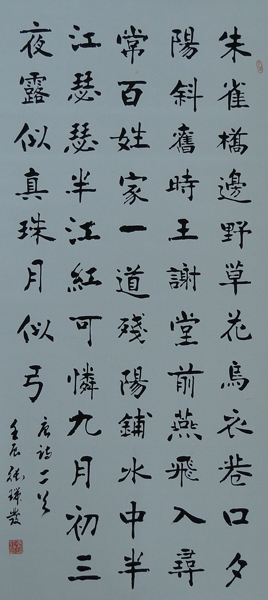 朱雀橋邊野草花烏衣巷口夕
陽斜舊時王謝堂前燕飛入尋
常百姓家一道殘陽鋪水中半
江瑟瑟半江紅可憐九月初三
夜露似真珠月似弓
唐詩二首
壬辰